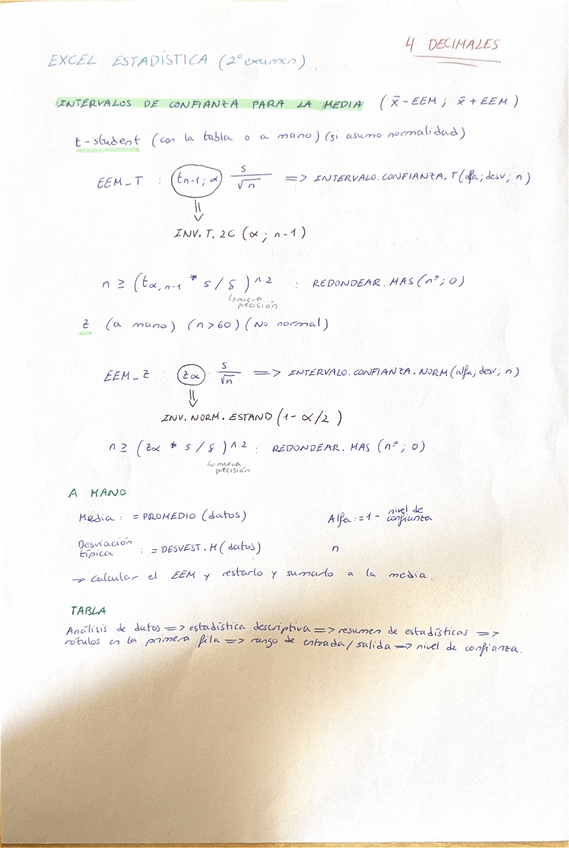 4 DECIMALES
EXCEL ESTADÍSTICA (2º examen).
INTERVALOS DE CONFIANZA PARA LA MEDIA (x̄-EEM ; x̄+EEM)
t-student (con la tabla o a mano) (si asumo normalidad)
EEM_T : t n-1; α s/√n => INTERVALO.CONFIANZA.T(alfa; desv; n)
INV.T.2C (α ; n-1)
n ≥ (tα, n-1 * s / δ)^2 : REDONDEAR.MAS (nº; 0)
↳ nueva precisión
z (a mano) (n>60) (No normal)
EEM_Z : zα · s/√n => INTERVALO.CONFIANZA.NORM (alfa; desv; n)
INV.NORM.ESTAND (1-α/2)
n ≥ (zα * s / δ)^2 : REDONDEAR.MAS (nº; 0)
↳ nueva precisión
A MANO
Media : = PROMEDIO (datos) Alfa := 1 - nivel de confianza
Desviación típica : = DESVEST.M (datos) n
→ calcular el EEM y restarlo y sumarlo a la media.
TABLA
Análisis de datos => estadística descriptiva => resumen de estadísticas =>
rótulos en la primera fila => rango de entrada/salida => nivel de confianza.